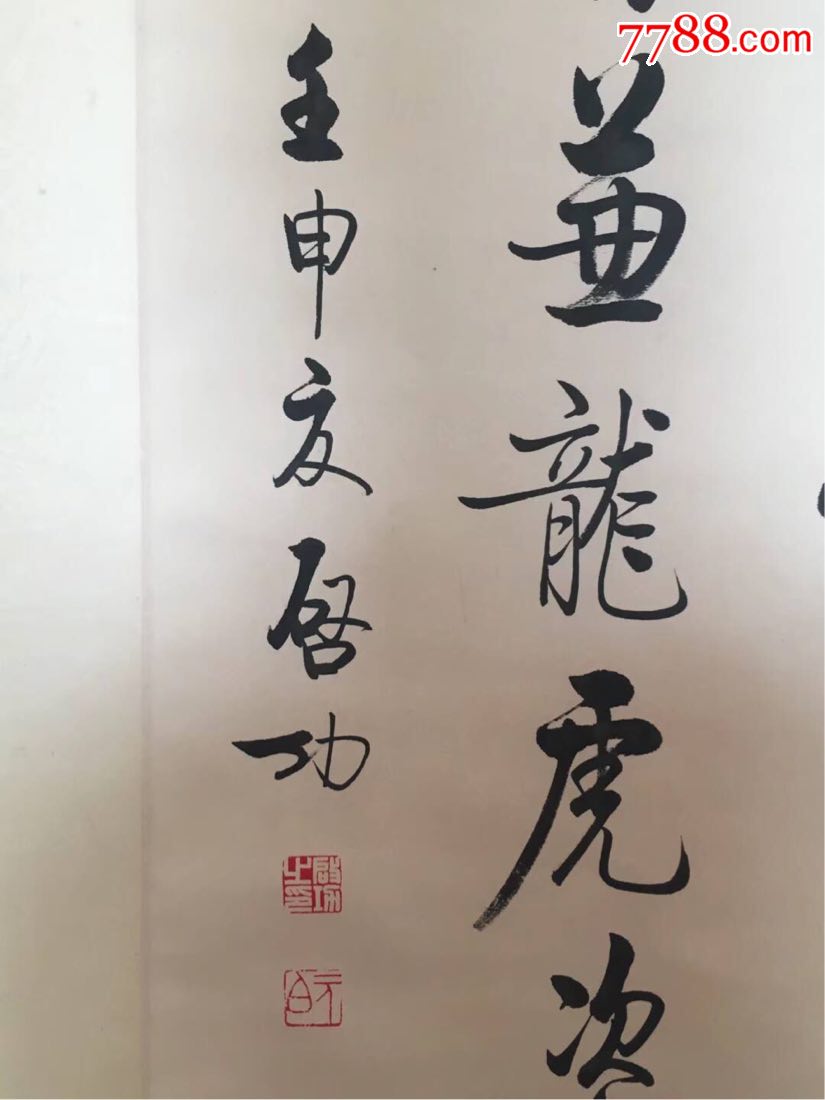 7788.com
兼龍虎
壬申夏啓功
啟功之印
元白